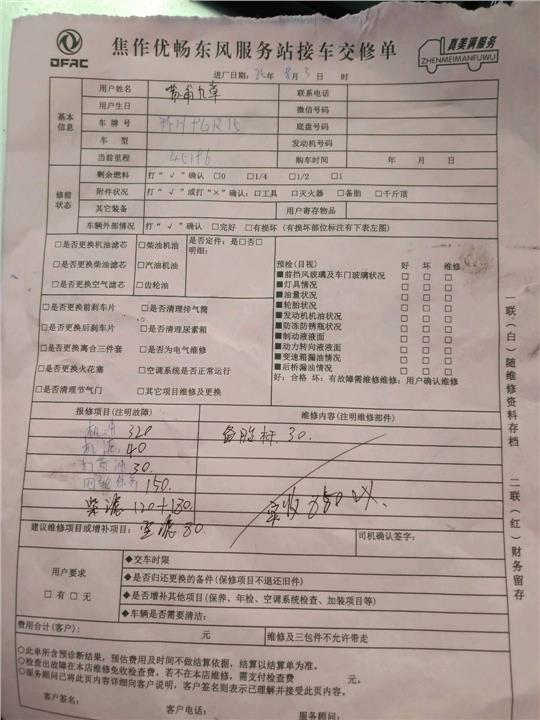 DFAC
焦作优畅东风服务站接车交修单
真美满服务
ZHENMEIMANFUWU
进厂日期: 年 8月3日 时
基本信息
用户姓名
联系电话
用户生日
微信号码
车牌号
底盘号码
车型
发动机号码
当前里程
购车时间 年 月 日
修前状态
剩余燃料 打“√”确认 □0 □1/4 □1/2 □1
附件状况 打“√”或打“×”确认:□工具 □灭火器 □备胎 □千斤顶
其它装备
用户寄存物品
车辆外部情况 打“√”确认 □完好 □有损坏(有损坏部位标注有下表左图)
□是否更换机油滤芯 □柴油机油
□是否更换柴油滤芯 □汽油机油
□是否更换空气滤芯 □齿轮油
是否定件:是□否□
明细:
□是否更换前刹车片 □是否清理排气筒
□是否更换后刹车片 □是否清理尿素箱
□是否更换离合三件套 □是否为电气维修
□是否更换火花塞 □空调系统是否正常运行
□是否清理节气门 □其它项目维修及更换
预检(目视) 好 坏 维修
■前挡风玻璃及车门玻璃状况 □ □ □
■灯具情况 □ □ □
■油量状况 □ □ □
■轮胎状况 □ □ □
■发动机机油状况 □ □ □
■防冻防锈瓶状况 □ □ □
■制动液液面 □ □ □
■动力转向液液面 □ □ □
■变速箱漏油情况 □ □ □
■后桥漏油情况 □ □ □
好:合格 坏:有故障需维修维修:用户确认维修
报修项目(注明故障)
维修内容(注明维修部件)
机油 320
机滤 40
30.
150.
柴滤 120+130
空滤 80.
30.
实收 850
建议维修项目或增补项目:
司机确认签字:
用户要求
□有 □无
◆交车时限
◆是否归还更换的备件(保修项目不退还旧件)
◆是否增补其他项目(保养、年检、空调系统检查、加装项目等)
◆车辆是否需要清洁:
费用合计(客户): 元
维修及三包件不允许带走
○此单所含预诊断结果,预估费用及时间不做结算依据,结算以结算单为准。
○检查出故障在本店维修免收检查费,若不在本店维修,需支付检查费 元。
○服务顾问已将此页内容详细向客户说明,客户签名则表示已理解并接受此页内容。
客户签名: 客户电话: 服务顾问:
一联(白)随维修资料存档 二联(红)财务留存